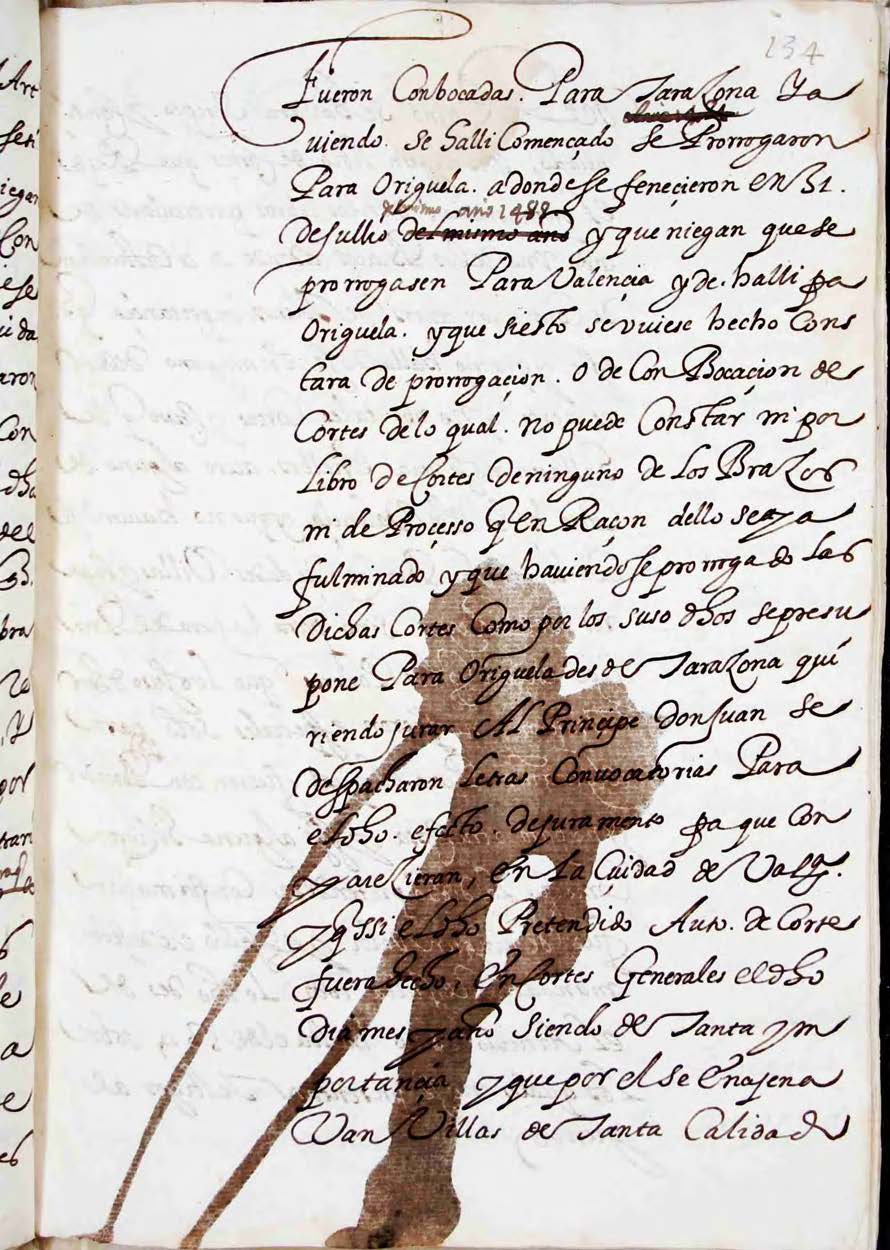 134
Fueron Conbocadas. Para Tarazona Ya
viendo. se halli Començado se Prorrogaron
Para Origuela. adonde se feneçieron en 31.
del mismo año 1488
de Jullio del mismo año y que niegan que se
prorrogasen Para Valençia y de. halli pa
Origuela. y que si esto se uviese hecho Cons
tara de prorrogaçion. o de Con Bocaçion de
Cortes de lo qual. no puede Constar ni por
Libro de Cortes de ninguno de los Brazos
ni de Proçesso q en Raçon dello se aya
fulminado y que haviendose prorrogado las
Dichas Cortes Como por los. suso dhos se presu
pone Para Origuela desde Tarazona qui
riendo jurar Al Principe Don Juan se
despacharon letras Convocatorias Para
el dho. efecto. de juramento pa que Con
pareçieran, en la Çuidad de Vala.
y q ssi el dho Pretendido Auto. de Corte
fuera hecho, en Cortes Generales el dho
dia mes y año siendo de Tanta ym
portançia y que por el se enajena
Van Villas de Tanta Calidad